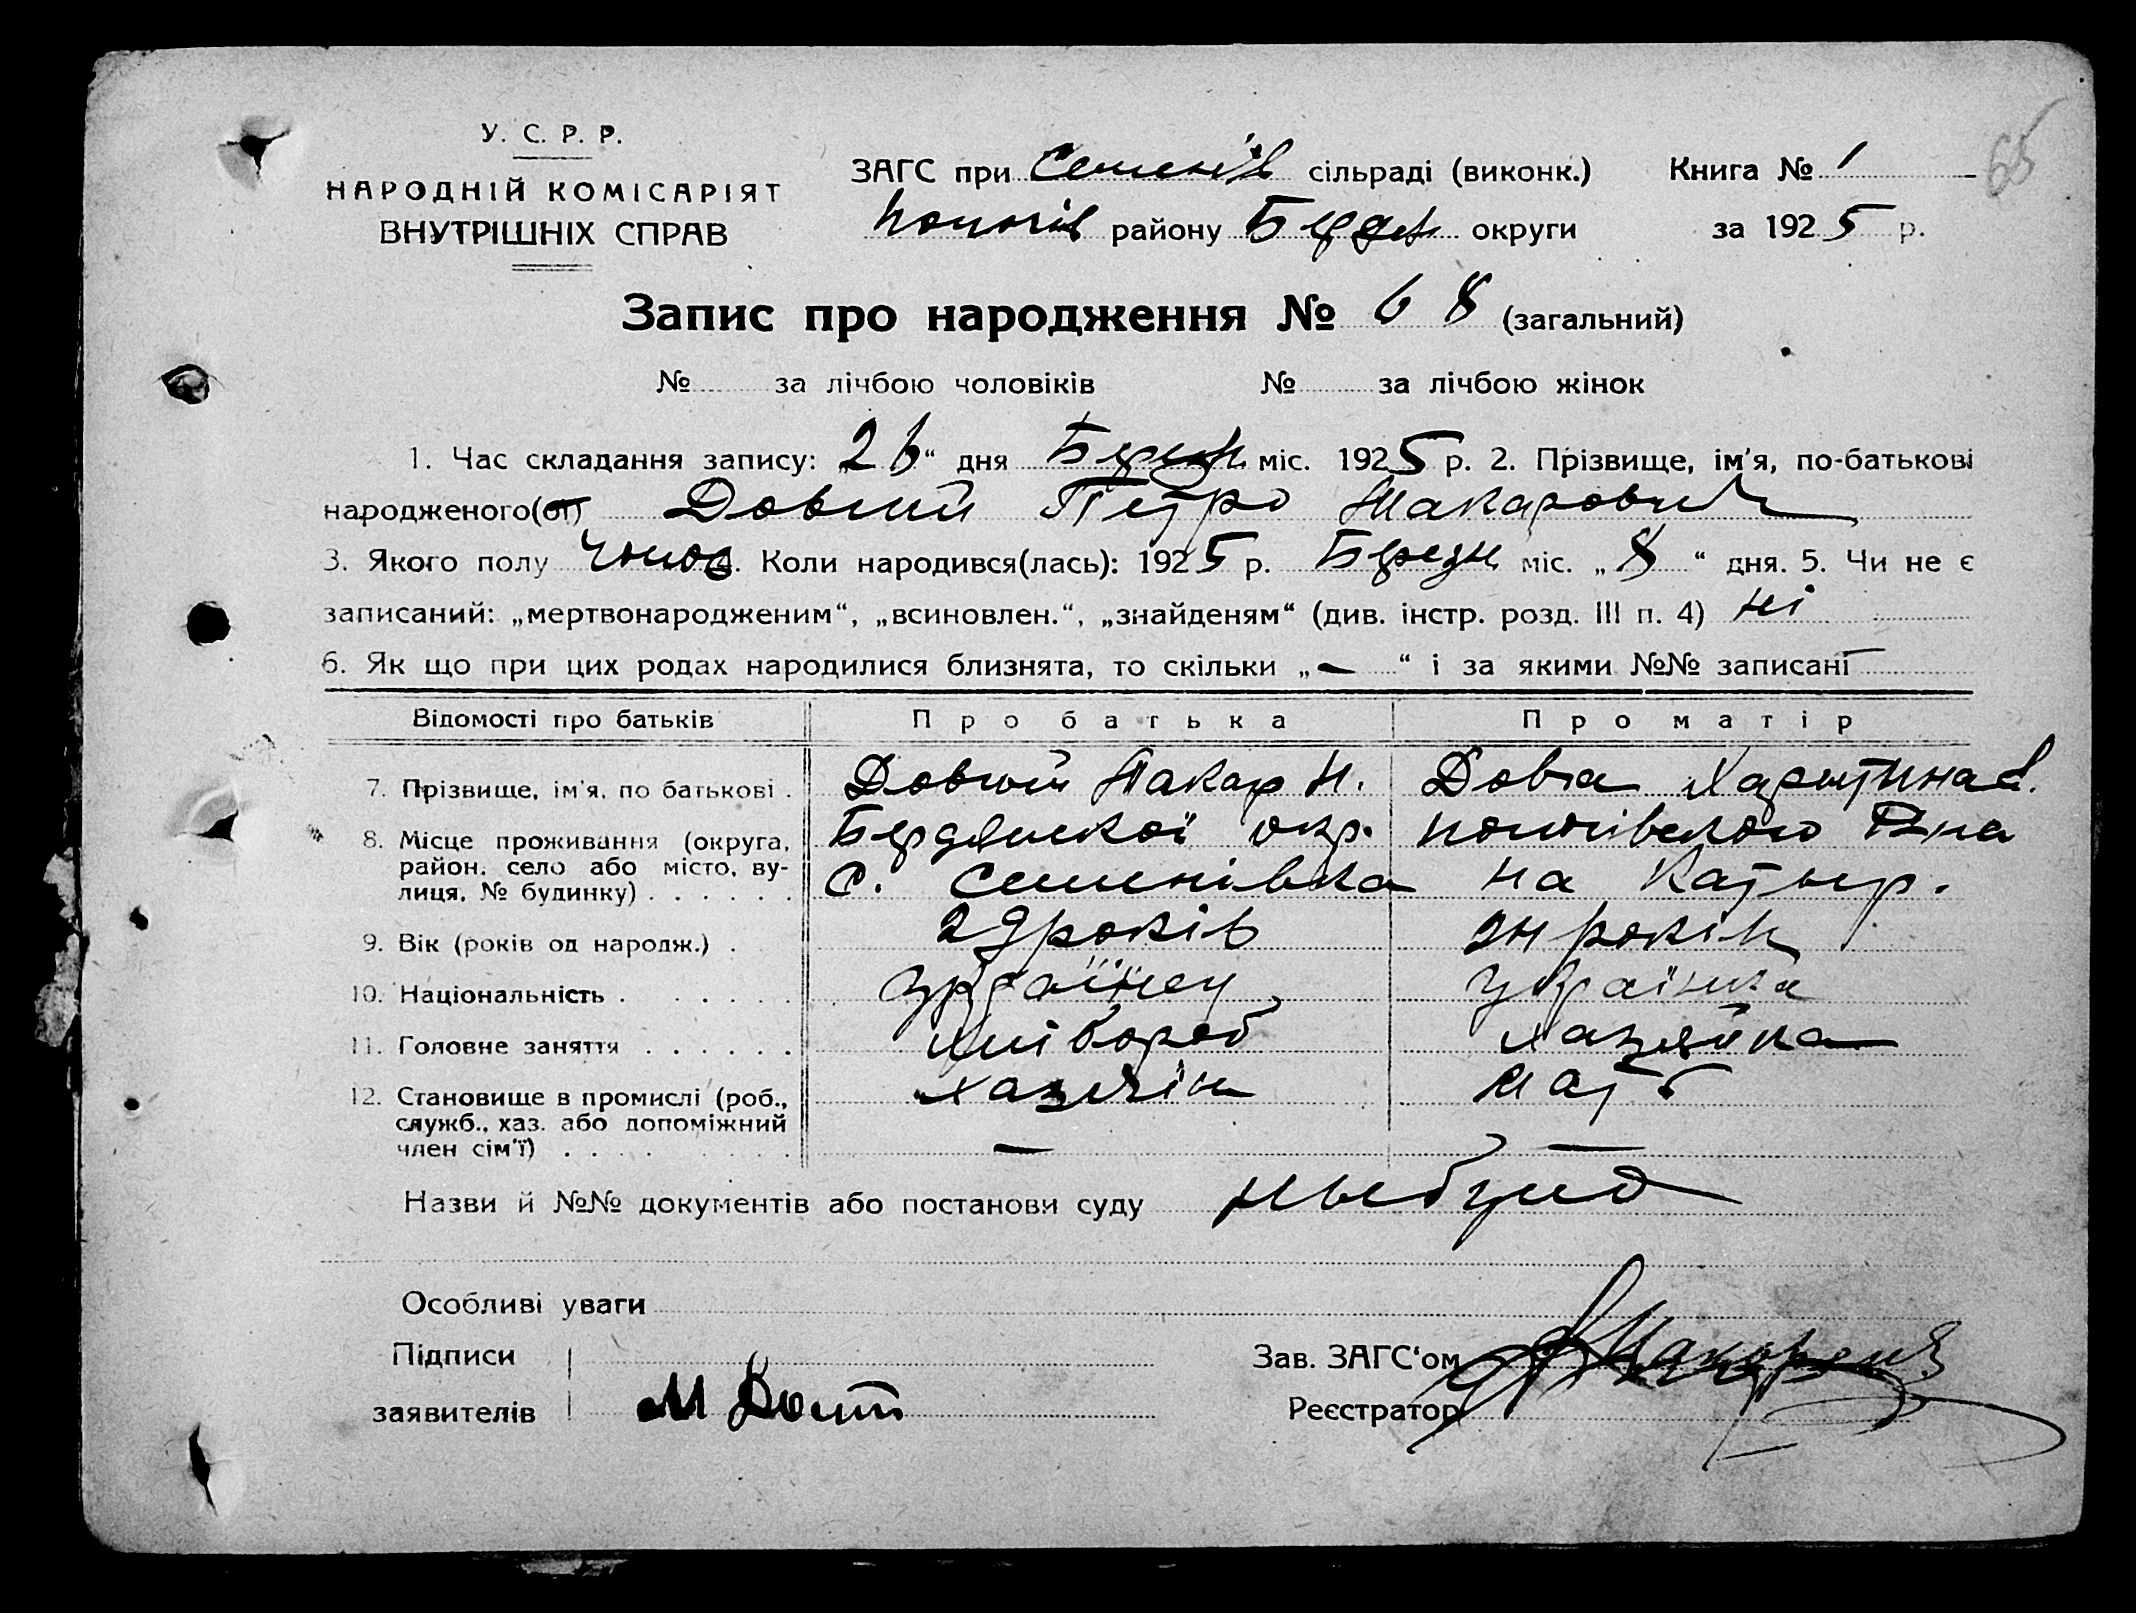 У. С. Р. Р.
НАРОДНІЙ КОМІСАРІЯТ
ВНУТРІШНІХ СПРАВ
ЗАГС при Семенів сільраді (виконк.) Книга № 1
65
району Бердян округи за 1925 р.
Запис про народження № 68 (загальний)
№ за лічбою чоловіків № за лічбою жінок
1. Час складання запису: „26“ дня Березн міс. 1925 р. 2. Прізвище, ім'я, по-батькові
народженого(ої) Довгий Петро Макарович
3. Якого полу Чолов 4. Коли народився(лась): 1925 р. Березн міс. „8“ дня. 5. Чи не є
записаний: „мертвонародженим“, „всиновлен.“, „знайденям“ (див. інстр. розд. III п. 4) Ні
6. Як що при цих родах народилися близнята, то скільки „—“ і за якими №№ записані
Відомості про батьків Про батька Про матір
7. Прізвище, ім'я, по батькові . Довгий Макар Н. Довга
8. Місце проживання (округа, район, село або місто, вулиця, № будинку) . . . . . . Бердянської окр. Р-на
С. Семенівка на
9. Вік (років од народж.) . 29 років 24 років
10. Національність . . . . . . Українец Українка
11. Головне заняття . . . . . . Хлібороб Хазяйка
12. Становище в промислі (роб., служб., хаз. або допоміжний член сім'ї) . . . . . . Хазяїн Мать
— —
Назви й №№ документів або постанови суду
Особливі уваги
Підписи
заявителів М
Зав. ЗАГС'ом
Реєстратор